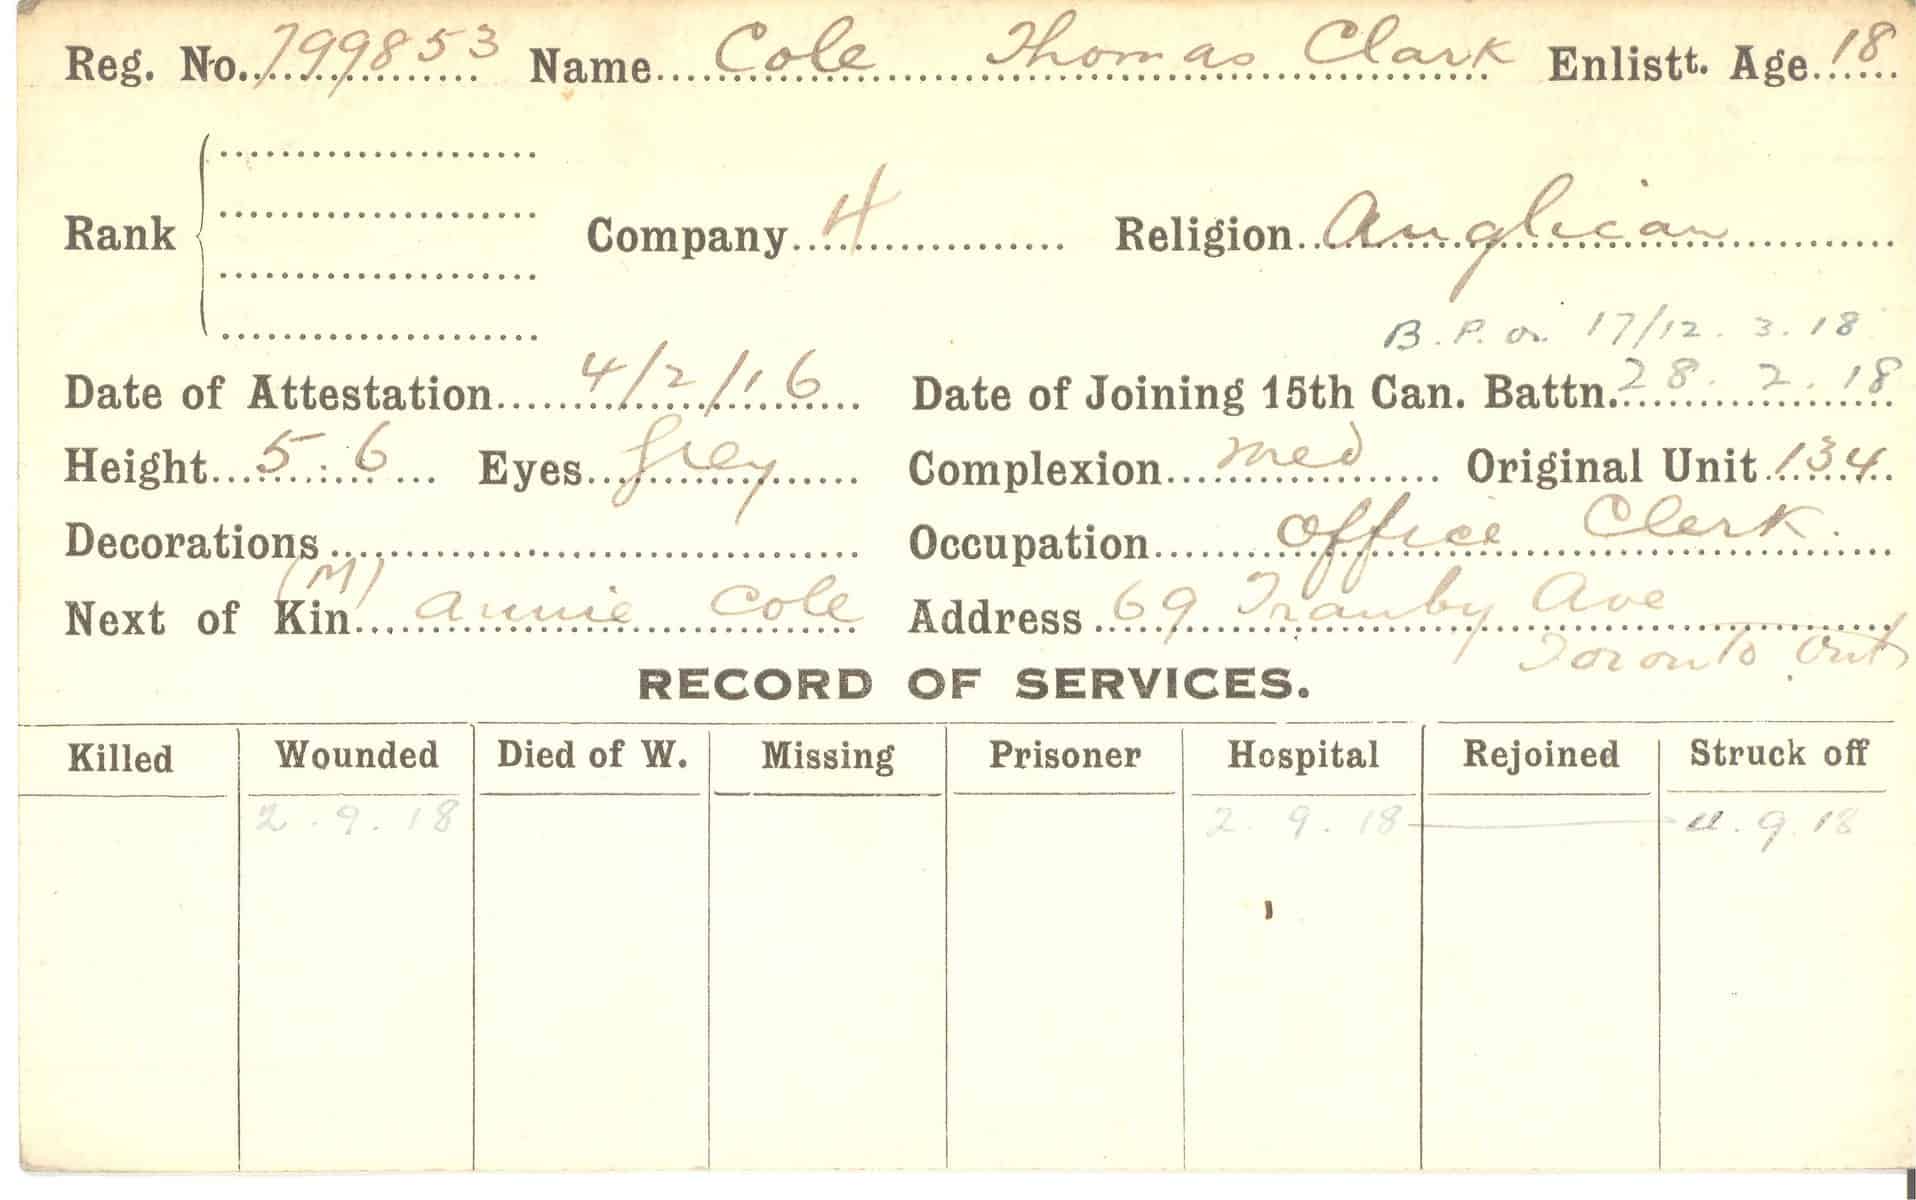 Reg. No. 799853 Name Cole Thomas Clark Enlistt. Age 18
Rank Company 4 Religion Anglican
B. P. on 17/12. 3. 18
Date of Attestation 4/2/16 Date of Joining 15th Can. Battn. 28. 2. 18
Height 5: 6 Eyes grey Complexion med Original Unit 134
Decorations Occupation Office Clerk.
Next of Kin (M) Annie Cole Address 69 Tranby Ave
Toronto Ont
RECORD OF SERVICES.
Killed Wounded Died of W. Missing Prisoner Hospital Rejoined Struck off
2. 9. 18 2. 9. 18 9. 18